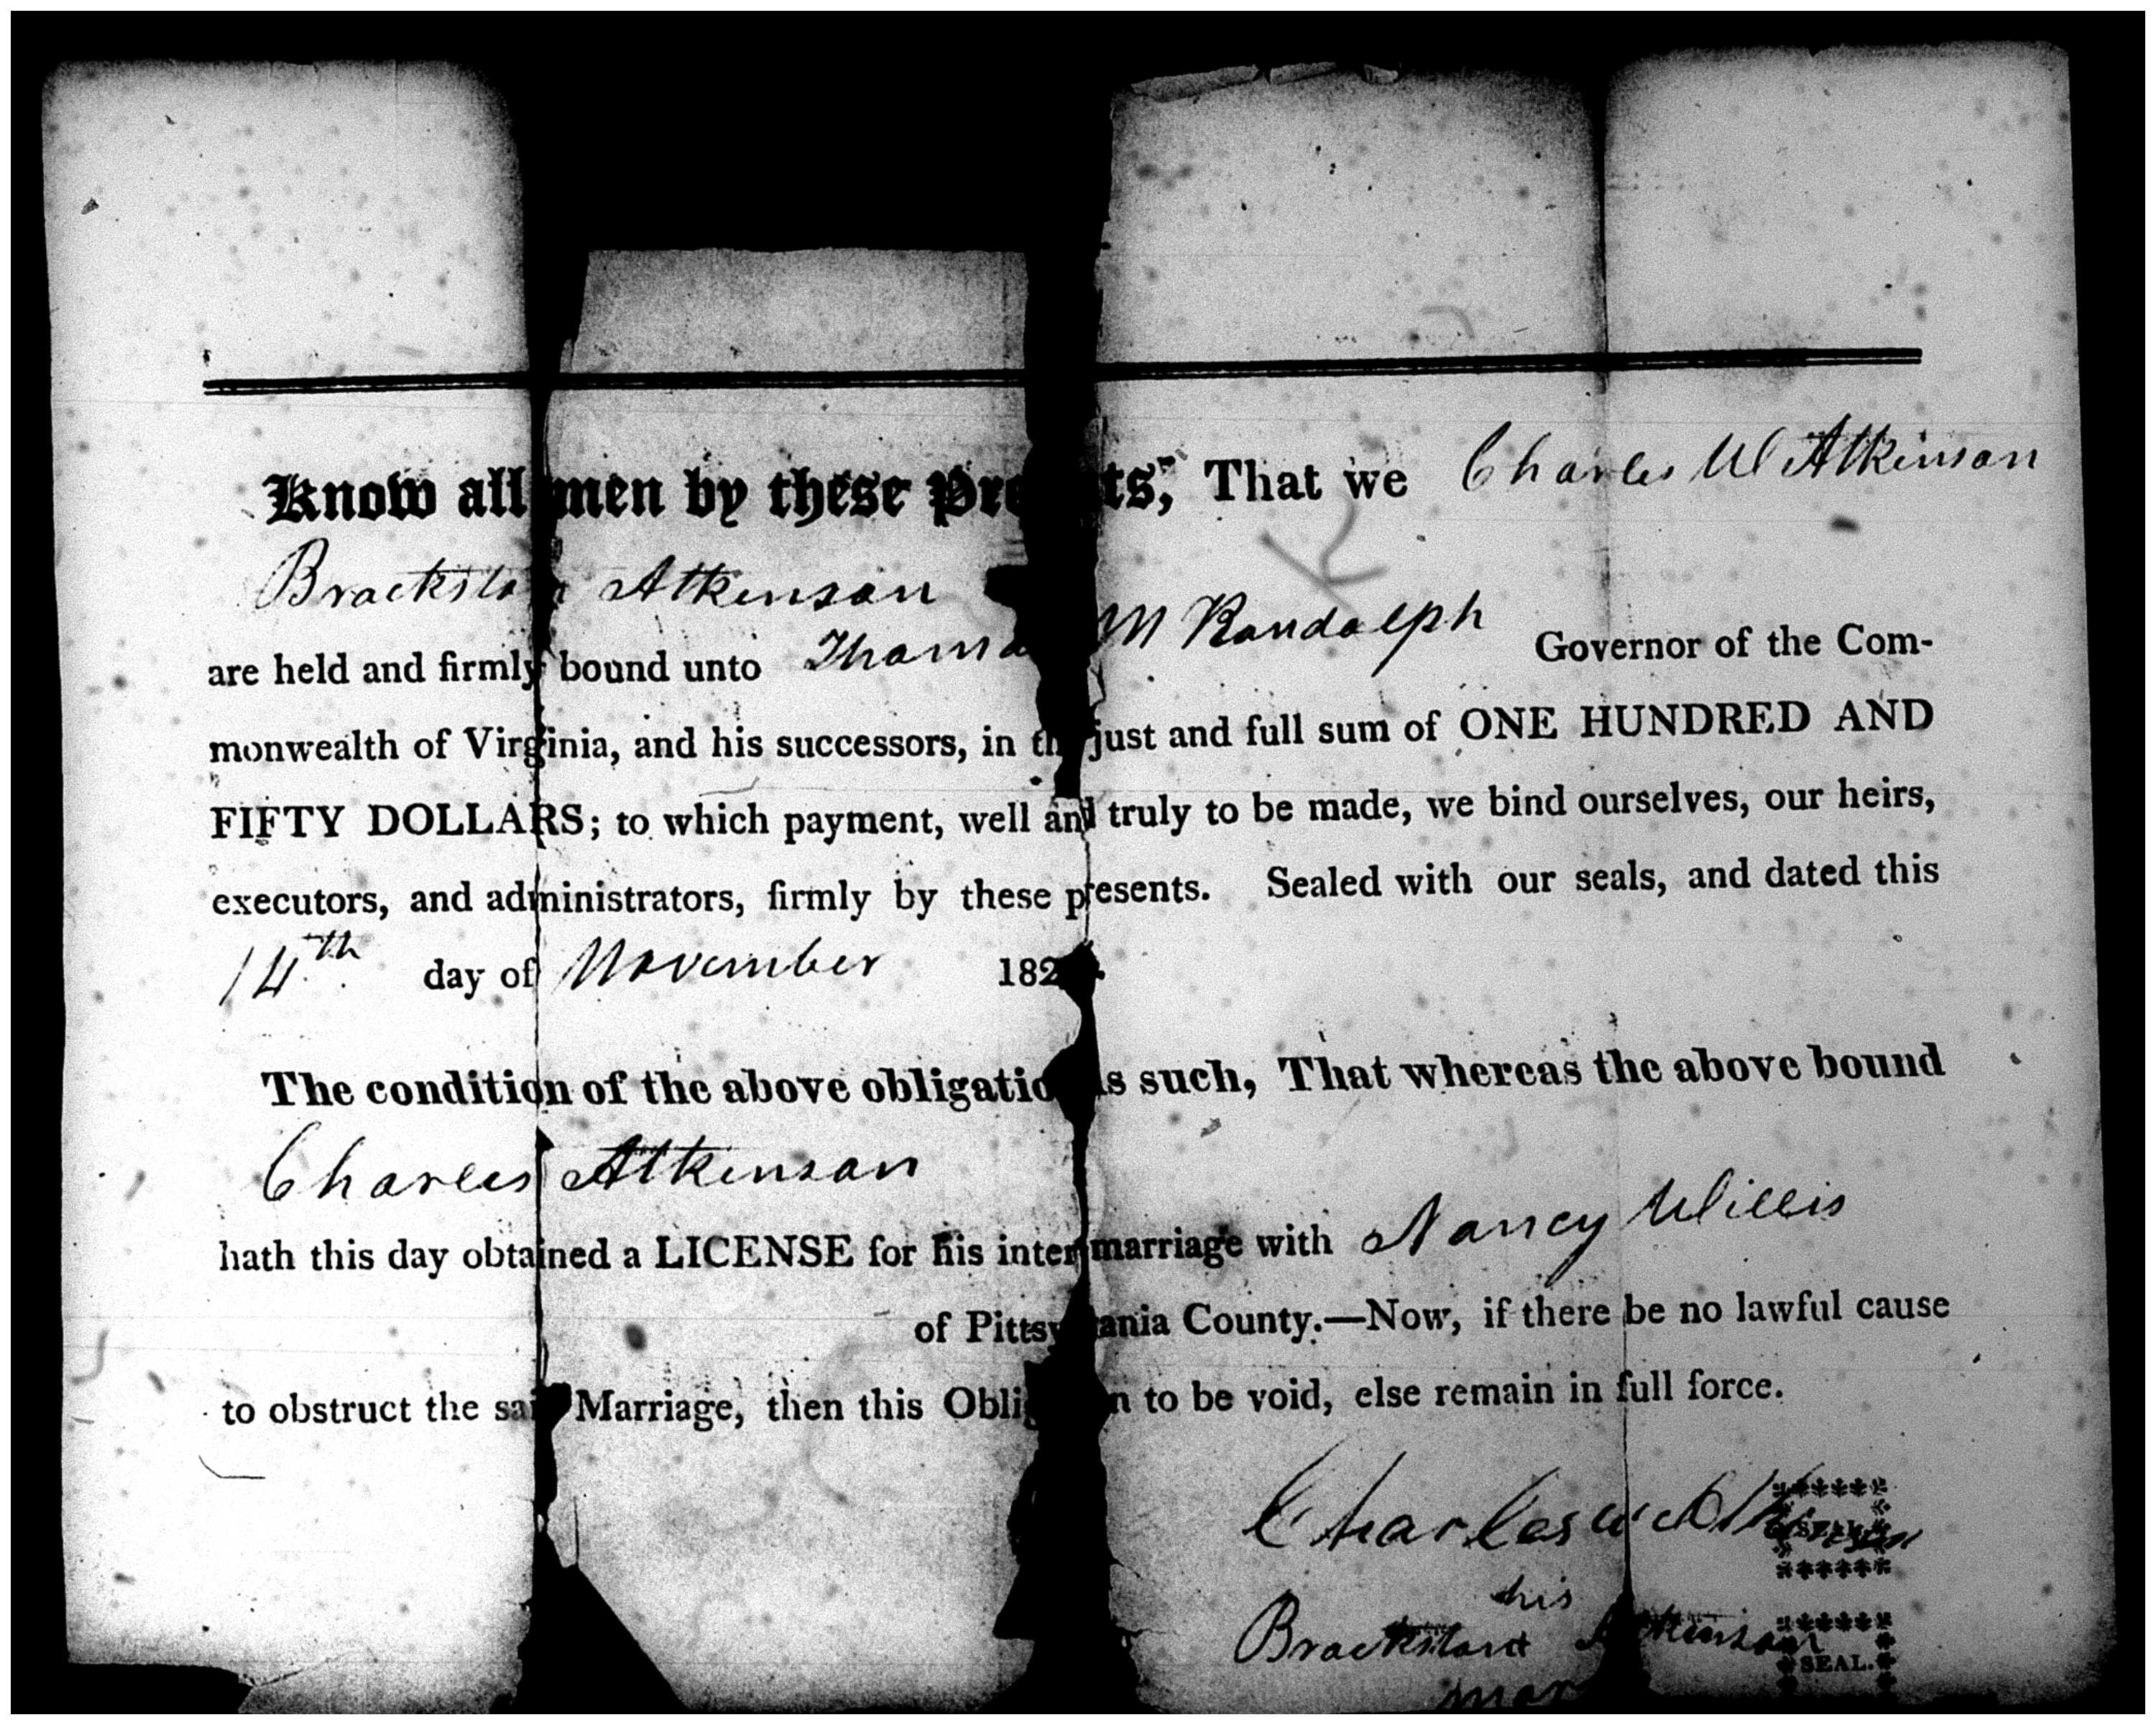 Know all men by these Pre ts, That we Charles W Atkinson
Brackston Atkinson
are held and firmly bound unto Thoma M Randolph Governor of the Com-
monwealth of Virginia, and his successors, in th just and full sum of ONE HUNDRED AND
FIFTY DOLLARS; to which payment, well and truly to be made, we bind ourselves, our heirs,
executors, and administrators, firmly by these presents. Sealed with our seals, and dated this
14th day of November 182
The condition of the above obligatio is such, That whereas the above bound
Charles Atkinson
hath this day obtained a LICENSE for his intermarriage with Nancy Willis
of Pittsy ania County.—Now, if there be no lawful cause
to obstruct the sai Marriage, then this Oblig n to be void, else remain in full force.
Charles W Atkinson SEAL.
his
Brackston Atkinson SEAL.
mar